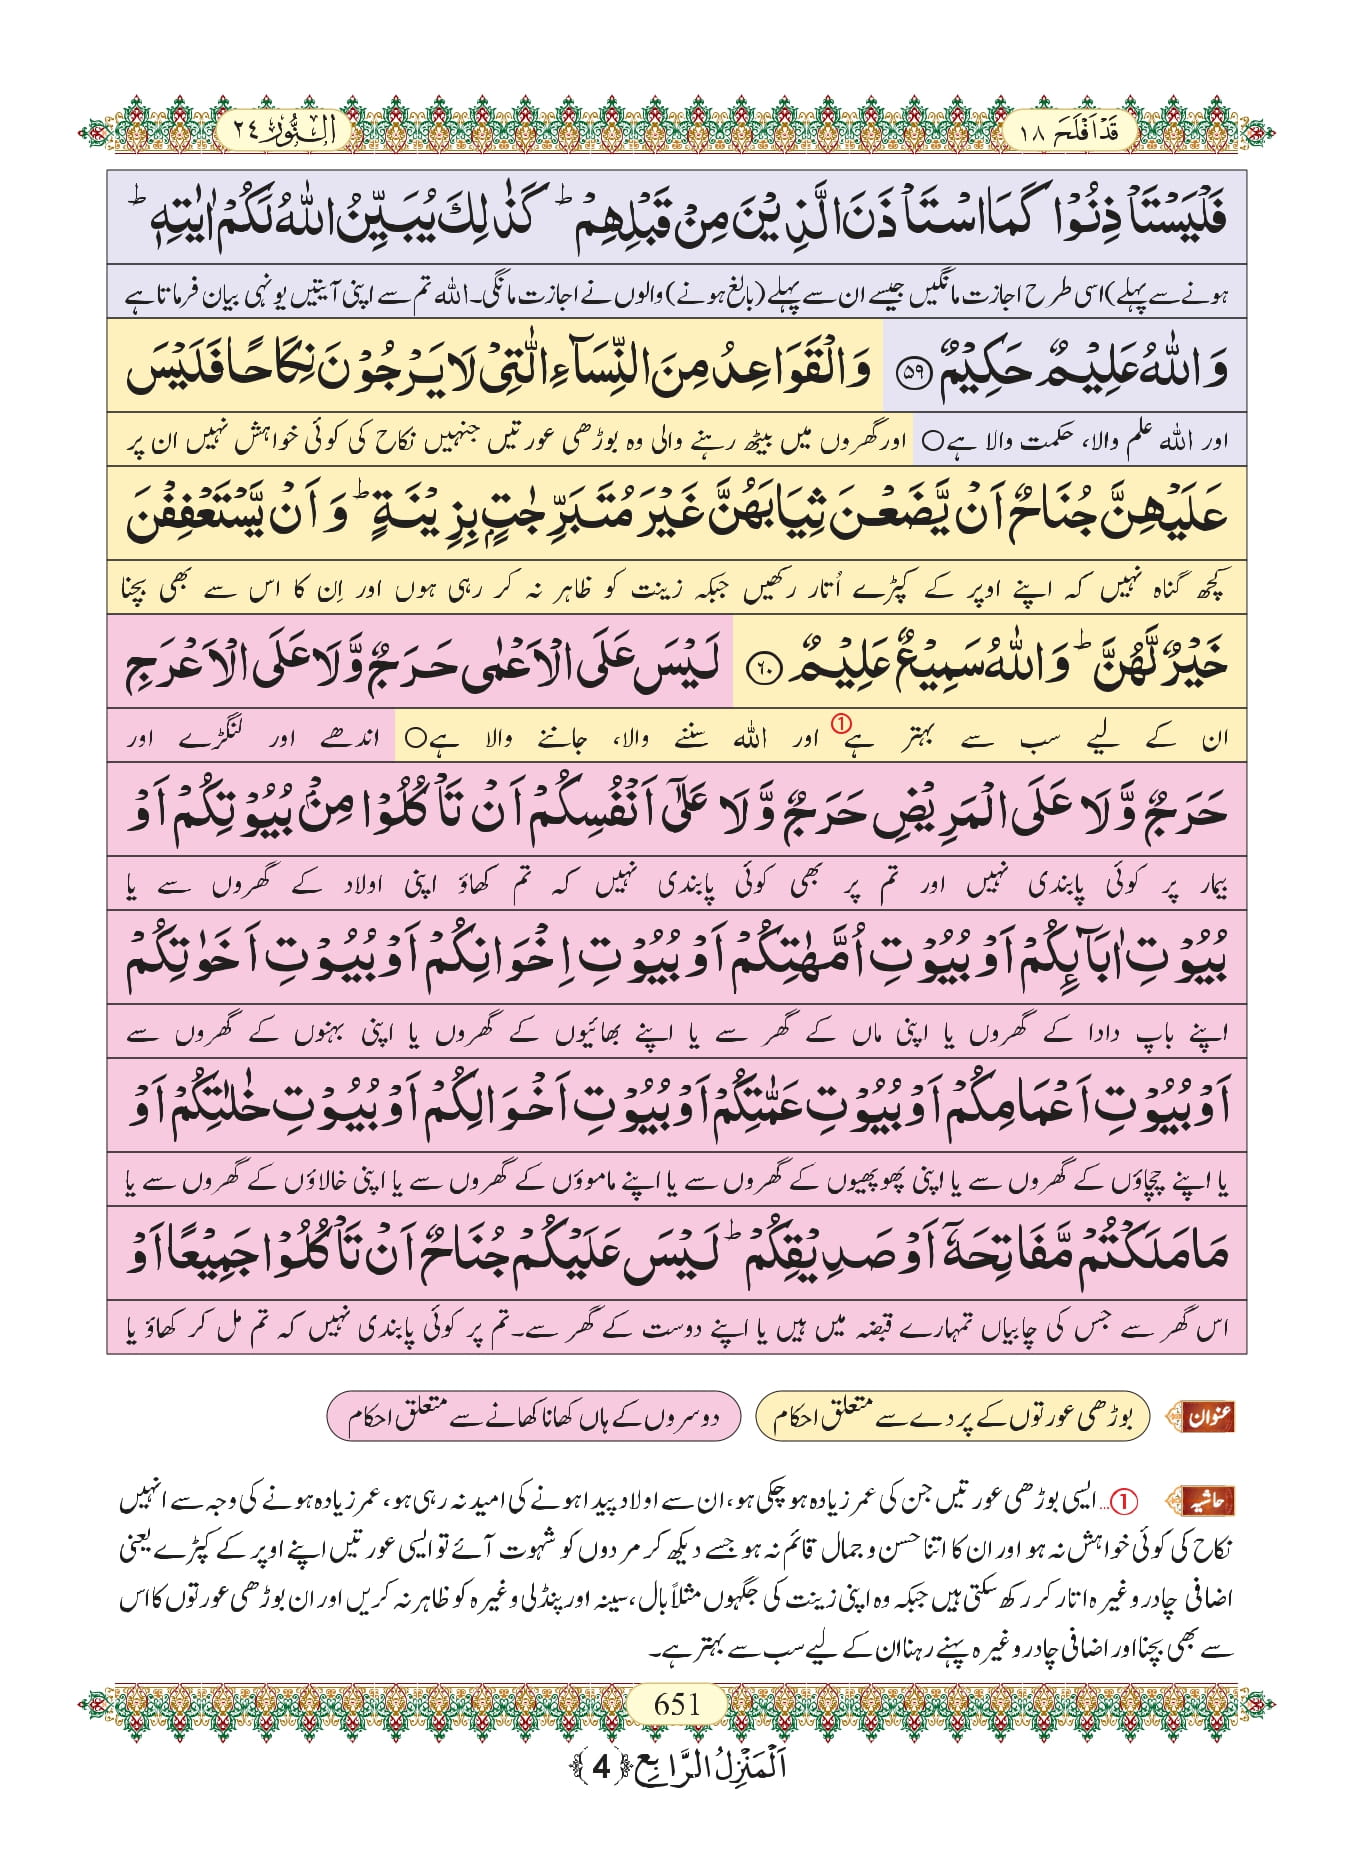 قَدْ اَفْلَحَ ١٨
اَلنُّوْر ٢٤
فَلْیَسْتَاْذِنُوْا كَمَا اسْتَاْذَنَ الَّذِیْنَ مِنْ قَبْلِهِمْ ؕ كَذٰلِكَ یُبَیِّنُ اللّٰهُ لَكُمْ اٰیٰتِهٖ ؕ
ہونے سے پہلے) اسی طرح اجازت مانگیں جیسے ان سے پہلے (بالغ ہونے) والوں نے اجازت مانگی۔ اللہ تم سے اپنی آیتیں یونہی بیان فرماتا ہے
وَ اللّٰهُ عَلِیْمٌ حَكِیْمٌ ﴿۵۹﴾ وَ الْقَوَاعِدُ مِنَ النِّسَآءِ الّٰتِیْ لَا یَرْجُوْنَ نِكَاحًا فَلَیْسَ
اور اللہ علم والا، حکمت والا ہے○ اور گھروں میں بیٹھ رہنے والی وہ بوڑھی عورتیں جنہیں نکاح کی کوئی خواہش نہیں ان پر
عَلَیْهِنَّ جُنَاحٌ اَنْ یَّضَعْنَ ثِیَابَهُنَّ غَیْرَ مُتَبَرِّجٰتٍۭ بِزِیْنَةٍ ؕ وَ اَنْ یَّسْتَعْفِفْنَ
کچھ گناہ نہیں کہ اپنے اوپر کے کپڑے اُتار رکھیں جبکہ زینت کو ظاہر نہ کر رہی ہوں اور اِن کا اس سے بھی بچنا
خَیْرٌ لَّهُنَّ ؕ وَ اللّٰهُ سَمِیْعٌ عَلِیْمٌ ﴿۶۰﴾ لَیْسَ عَلَى الْاَعْمٰى حَرَجٌ وَّ لَا عَلَى الْاَعْرَجِ
ان کے لیے سب سے بہتر ہے① اور اللہ سننے والا، جاننے والا ہے○ اندھے اور لنگڑے اور
حَرَجٌ وَّ لَا عَلَى الْمَرِیْضِ حَرَجٌ وَّ لَا عَلٰۤى اَنْفُسِكُمْ اَنْ تَاْكُلُوْا مِنْۢ بُیُوْتِكُمْ اَوْ
بیمار پر کوئی پابندی نہیں اور تم پر بھی کوئی پابندی نہیں کہ تم کھاؤ اپنی اولاد کے گھروں سے یا
بُیُوْتِ اٰبَآىٕكُمْ اَوْ بُیُوْتِ اُمَّهٰتِكُمْ اَوْ بُیُوْتِ اِخْوَانِكُمْ اَوْ بُیُوْتِ اَخَوٰتِكُمْ
اپنے باپ دادا کے گھروں یا اپنی ماں کے گھر سے یا اپنے بھائیوں کے گھروں یا اپنی بہنوں کے گھروں سے
اَوْ بُیُوْتِ اَعْمَامِكُمْ اَوْ بُیُوْتِ عَمّٰتِكُمْ اَوْ بُیُوْتِ اَخْوَالِكُمْ اَوْ بُیُوْتِ خٰلٰتِكُمْ اَوْ
یا اپنے چچاؤں کے گھروں سے یا اپنی پھوپھیوں کے گھروں سے یا اپنے ماموؤں کے گھروں سے یا اپنی خالاؤں کے گھروں سے یا
مَا مَلَكْتُمْ مَّفَاتِحَهٗۤ اَوْ صَدِیْقِكُمْ ؕ لَیْسَ عَلَیْكُمْ جُنَاحٌ اَنْ تَاْكُلُوْا جَمِیْعًا اَوْ
اس گھر سے جس کی چابیاں تمہارے قبضہ میں ہیں یا اپنے دوست کے گھر سے۔ تم پر کوئی پابندی نہیں کہ تم مل کر کھاؤ یا
عنوان بوڑھی عورتوں کے پردے سے متعلق احکام دوسروں کے ہاں کھانا کھانے سے متعلق احکام
حاشیہ ①... ایسی بوڑھی عورتیں جن کی عمر زیادہ ہو چکی ہو، ان سے اولاد پیدا ہونے کی امید نہ رہی ہو، عمر زیادہ ہونے کی وجہ سے انہیں
نکاح کی کوئی خواہش نہ ہو اور ان کا اتنا حسن و جمال قائم نہ ہو جسے دیکھ کر مردوں کو شہوت آئے تو ایسی عورتیں اپنے اوپر کے کپڑے یعنی
اضافی چادر وغیرہ اتار کر رکھ سکتی ہیں جبکہ وہ اپنی زینت کی جگہوں مثلاً بال، سینہ اور پنڈلی وغیرہ کو ظاہر نہ کریں اور ان بوڑھی عورتوں کا اس
سے بھی بچنا اور اضافی چادر وغیرہ پہنے رہنا ان کے لیے سب سے بہتر ہے۔
651
اَلْمَنْزِلُ الرَّابِع ﴿4﴾